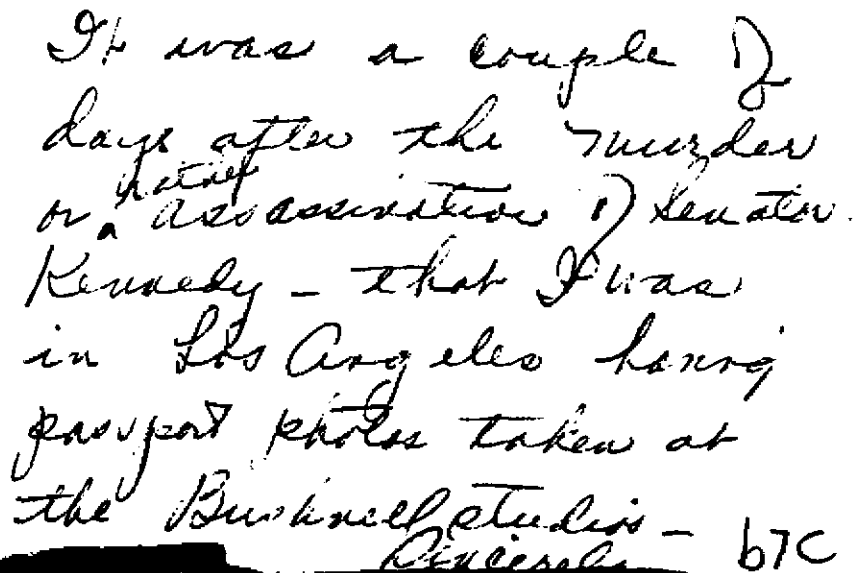 It was a couple of
days after the murder
or rather assassination of Senator
Kennedy - that I was
in Los Angeles having
passport photos taken at
the Bushnell studios -
Sincerely
b7C